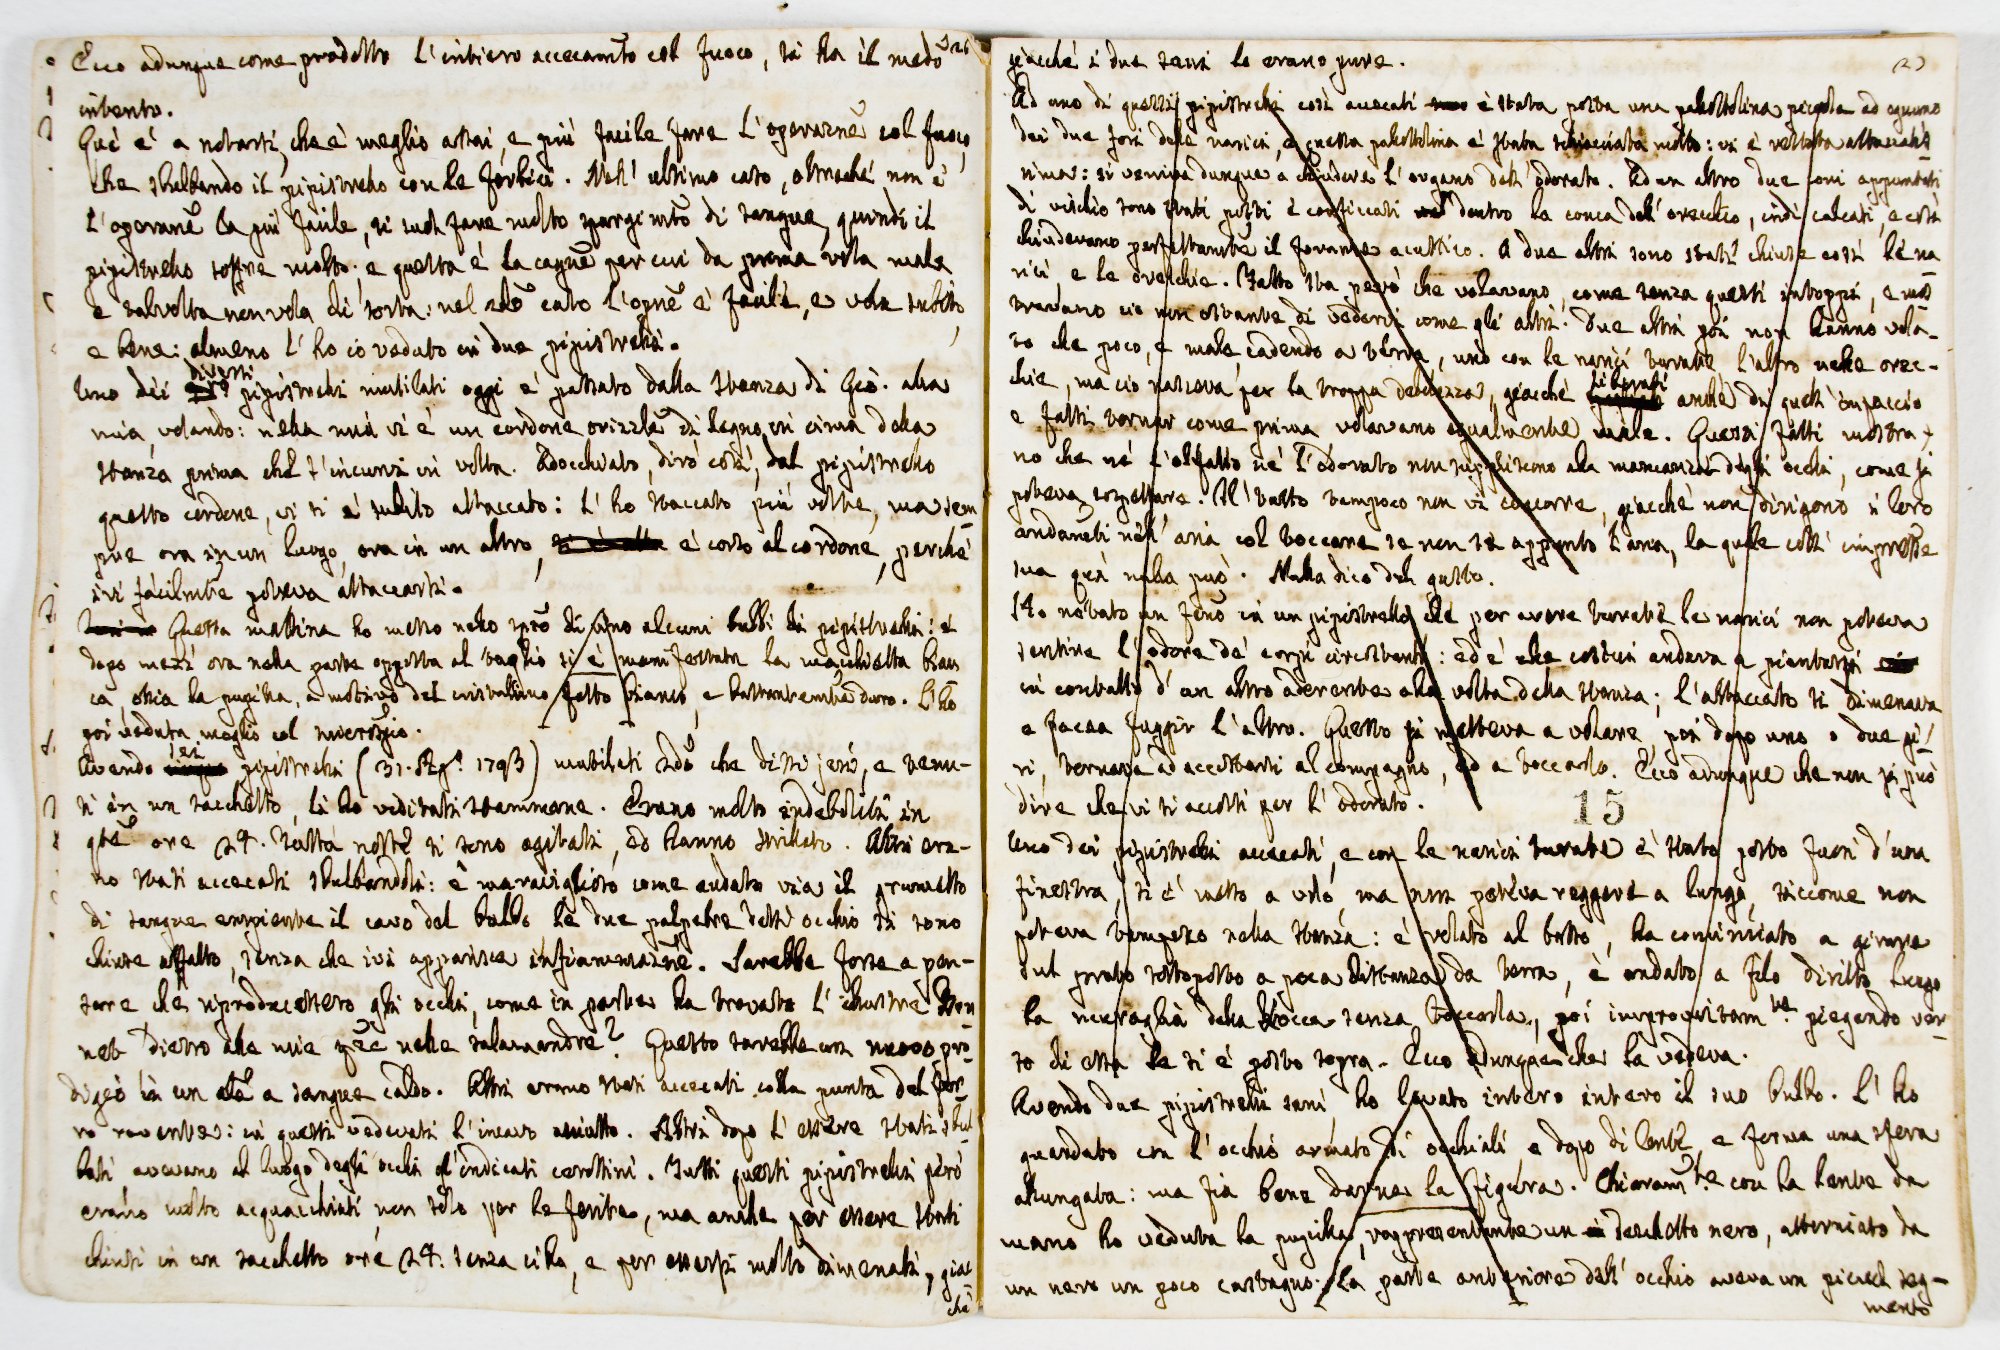 Ecco adunque come prodotto l'intiero accecam̃to col fuoco, si ha il medõ
126
intento.
Quì è a notarsi, che è meglio assai, e più facile fare l'operaznẽ col fuoco,
che sbulbando il pipistrello con le forbici. Nell'ultimo caso, oltreché non è
l'operanẽ la più facile, si suol fare molto spargimtõ di sangue, quindi il
pipistrello soffre molto: e questa è la cagnẽ per cui da prima vola male
e talvolta non vola di sorta: nel caso l'opnẽ è facile, e vola subito
e bene: almeno l'ho io veduto in due pipistrelli.
Uno dei diversi pipistrelli mutilati oggi è passato dalla stanza di Gio. alla
mia, volando: nella mia vi è un cordone orizzlẽ di legno in cima della
stanza prima che s'incurvi in volta. Adocchiato, dirò così, dal pipistrello
questo cordone, vi si è subito attaccato: l'ho staccato più volte, ma sem
pre ora in un luogo, ora in un altro, è corso al cordone, perché
ivi facilmtẽ poteva attaccarsi.
Questa mattina ho messo nello sptõ di vino alcuni bulbi di pipistrelli: e
dopo mezz'ora nella parte opposta al taglio si è manifestata la macchietta bian
ca, ossia la pupilla, a motivo del cristallino fatto bianco, e bastantemente duro. L'ho
poi veduta meglio col microspio.
Avendo sei pipistrelli (31. Agº. 1793) mutilati che dissi jeri, e tenu-
ti in un sacchetto, li ho visitati stammane. Erano molto indeboliti in
qtẽ ore 24. Tutta notte si sono agitati, ed hanno strillato. Altri era-
no stati accecati sbulbandoli: è maraviglioso come andato via il grumetto
di sangue empiente il cavo del bulbo le due palpebre dell'occhio si sono
chiuse affatto, senza che ivi apparisca infiammaznẽ. Sarebbe forse a pen-
sare che riproducessero gli occhi, come in parte ha trovato l'illustre Bon
net dietro alle mie nelle salamandre? Questo sarebbe un nuovo pro
digio in un a sangue caldo. Altri erano stati accecati colla punta del fer
ro rovente: in questi vedevasi l'incavo asciutto. Altri dopo l'essere stati sbul
bati avevano al luogo degli occhi gl'indicati cerottini. Tutti questi pipistrelli però
erano molto acquacchiati non solo per le ferite, ma anche per essere stati
chiusi in un sacchetto ore 24. senza cibo, e per essersi molto dimenati, giac
chè
giacché i due sani lo erano pure.
Ad uno di questi pipistrelli così accecati è stata posta una pallottolina piccola ad ognuno
dei due fori delle narici, e questa pallottolina è stata schiacciata molto: vi è restata attaccatis
sima: si veniva dunque a chiudere l'organo dell'odorato. Ad un altro due coni appuntati
di vischio sono stati posti e conficcati dentro la conca dell'orecchio, indi calcati, e così
chiudevano perfettamtẽ il forame acustico. A due altri sono state chiuse così le na
rici, e le orecchie. Fatto sta però che volavano, come senza questi intoppi, e mos
travano ciò non ostante di vederci come gli altri. Due altri poi non hanno vola-
to che poco, e male cadendo a terra, uno con le narici turate, l'altro nelle orec-
chie, ma ciò nasceva per la troppa debolezza, giacché liberati anche da quell'impaccio
e fatti tornar come prima volavano egualmente male. Questi fatti mostra-
no che né l'olfatto né l'odorato non suppliscono alla mancanza degli occhi, come si
poteva sospettare. Il tatto tampoco non vi concorre, giacché non dirigono i loro
andamẽti nell'aria col toccare se non se appunto l'aria, la quale colle impresse
sua qui nulla può. Nulla dico del gusto.
Ho notato un fenõ in un pipistrello che per avere turate le narici non poteva
sentire l'odore de' corpi circostanti: ed è che costui andava a piantarsi
in contatto d'un altro aderente alla volta della stanza; l'attaccato si dimenava
e facea fuggir l'altro. Questo si metteva a volare, poi dopo uno o due gi
ri, tornava ad accostarsi al compagno, ed a toccarlo. Ecco adunque che non si può
dire che vi si accosti per l'odorato.
15
Uno dei pipistrelli accecati, e con le narici turate è stato posto fuori d'una
finestra, si è messo a volo, ma non poteva reggere a lungo, siccome non
poteva tampoco nella stanza: è volato al basso, ha cominciato a girare
sul prato sottoposto a poca distanza da terra, è andato a filo diritto lungo
la muraglia della Rocca senza toccarla, poi improvvisamte. piegando ver
so di essa le si è posto sopra. Ecco adunque che la vedeva.
Avendo due pipistrelli sani ho levato intero intero il suo bulbo. L'ho
guardato con l'occhio armato di occhiali, e dopo di lente, e forma una sfera
allungata: ma fia bene darne la figura. Chiaramte con la lente da
mano ho veduta la pupilla, rappresentante un deschetto nero, attorniato da
un nero un poco castagno. La parte anteriore dell'occhio aveva un piccol seg-
mento